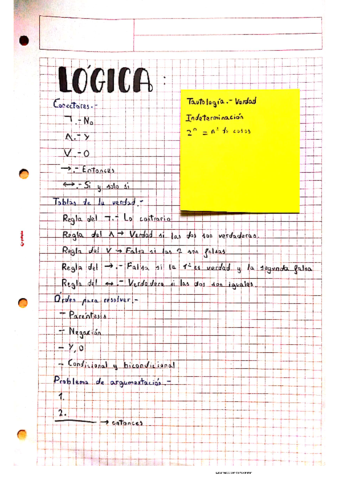 LÓGICA:
Conectores.-
¬.- No
Λ.- Y
V.- O
→.- Entonces
↔.- Si y solo si
Tautología.- Verdad
Indeterminación
2ⁿ = nº de casos
Tablas de la verdad.-
Regla del ¬.- Lo contrario
Regla del Λ → Verdad si las dos son verdaderas.
Regla del V → Falsa si las 2 son falsas
Regla del →.- Falsa si la 1ª es verdad y la segunda falsa
Regla del ↔.- Verdadera si las dos son iguales.
Orden para resolver.-
- Paréntesis
- Negación
- Y, O
- Condicional y bicondicional
Problema de argumentación.-
1.
2.
→ entonces